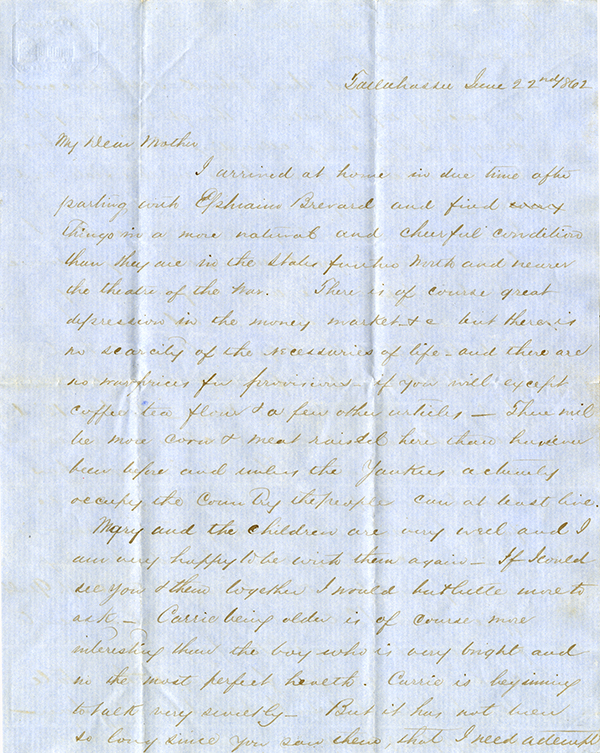 Tallahassee June 22nd 1862
My Dear Mother
I arrived at home in due time after
parting with Ephraim Brevard and find
Things in a more natural and cheerful condition
than they are in the States further North and nearer
the theatre of the War. There is of course great
depression in the money market & c but there is
no scarcity of the necessaries of life - and there are
no war prices for provisions - if you will except
coffee tea flour & a few other articles - There will
be more corn & meat raised here than has ever
been before and unless the Yankees actually
occupy the Country the people can at least live.
Mary and the children are very well and I
am very happy to be with them again - If I could
see you & them together I would but little more to
ask - Carrie being older is of course more
interesting than the boy who is very bright and
in the most perfect health. Carrie is beginning
to talk very sweetly - But it has not been
so long since you saw them, that I need attempt